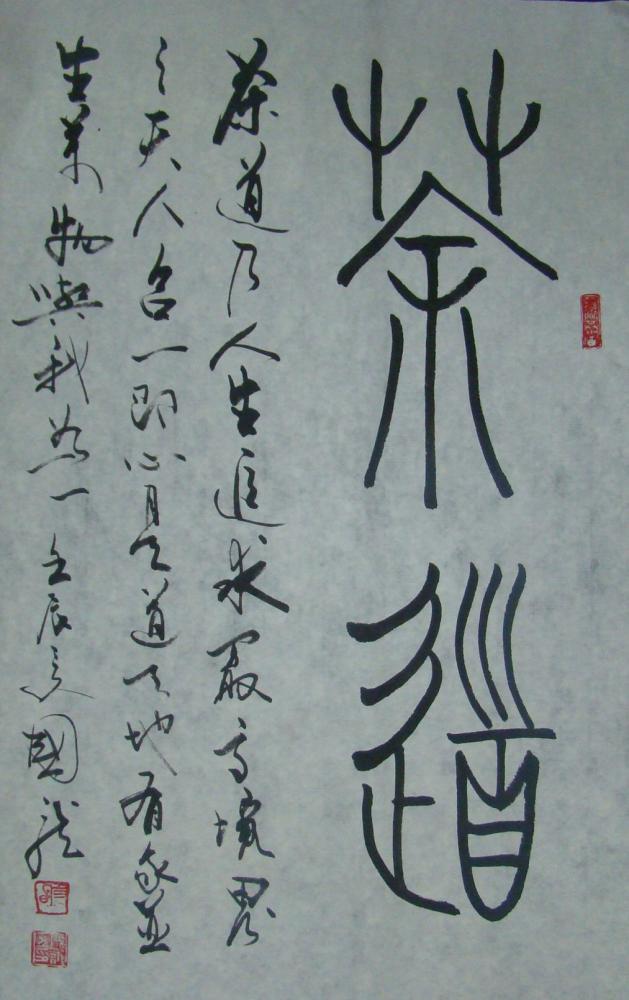 茶道
茶道乃人生追求最高境界
之天人合一即心是道天地有並
生萬物與我為一 壬辰夏國龍